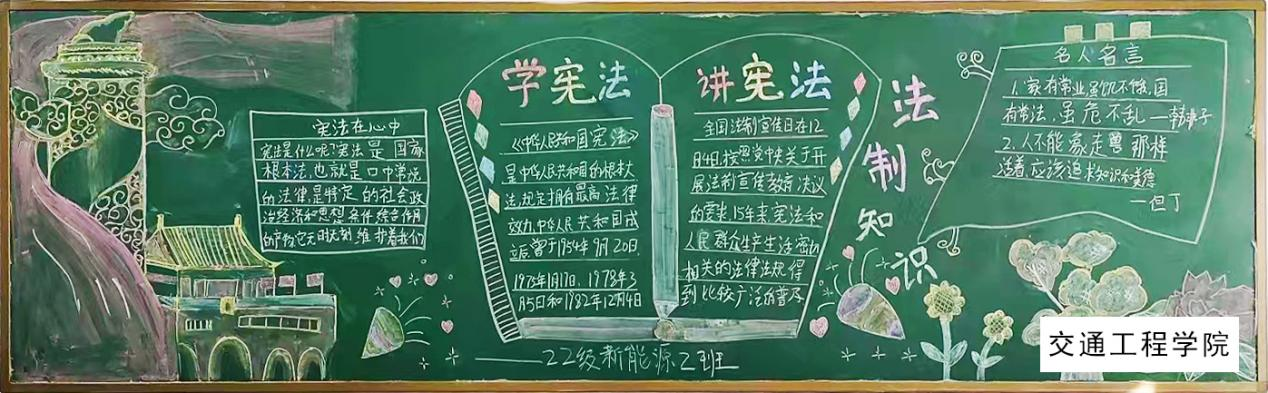 宪法在心中
宪法是什么呢?宪法是国家
根本法,也就是口中常说
的法律,是特定的社会政
治经济和思想条件综合作用
的产物它无时无刻维护着我们
学宪法
《中华人民共和国宪法》
是中华人民共和国的根本大
法,规定拥有最高法律
效力.中华人民共和国成
立后,曾于1954年9月20日.
1975年1月17日、1978年3
月5日和1982年12月4日
讲宪法
全国法制宣传日在12
月4日,按照党中央关于开
展法制宣传教育决议
的要求,15年来宪法和
人民群众生产生活密切
相关的法律法规得
到比较广泛的普及
法制知识
名人名言
1.家有常业,虽饥不饿,国
有常法,虽危不乱—韩非子
2.人不能象走兽那样
活着,应该追求知识和美德
—但丁
——22级新能源2班
交通工程学院